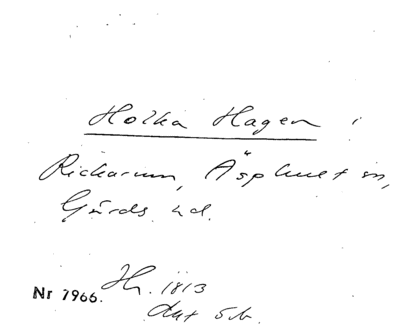 Holka Hagen i
Rickarum, Äsphult sn,
Gärds hd.
Nr 7966. Hr. 1813
dat Sb.